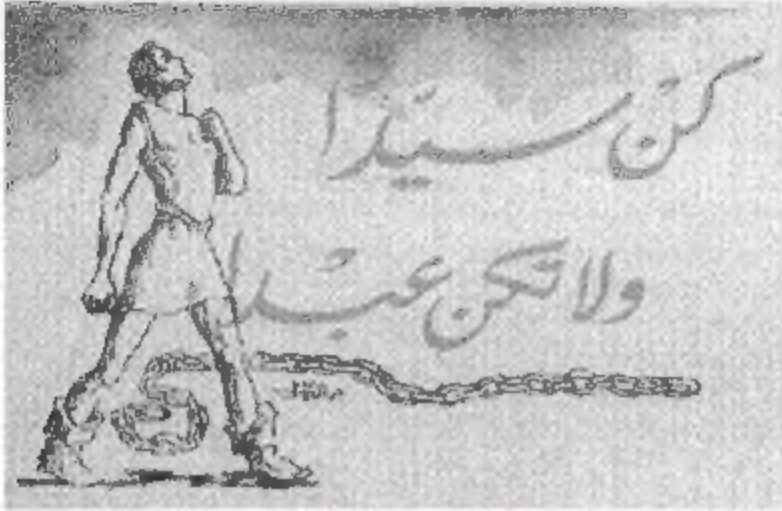 كن سيّدا
ولا تكن عبدا